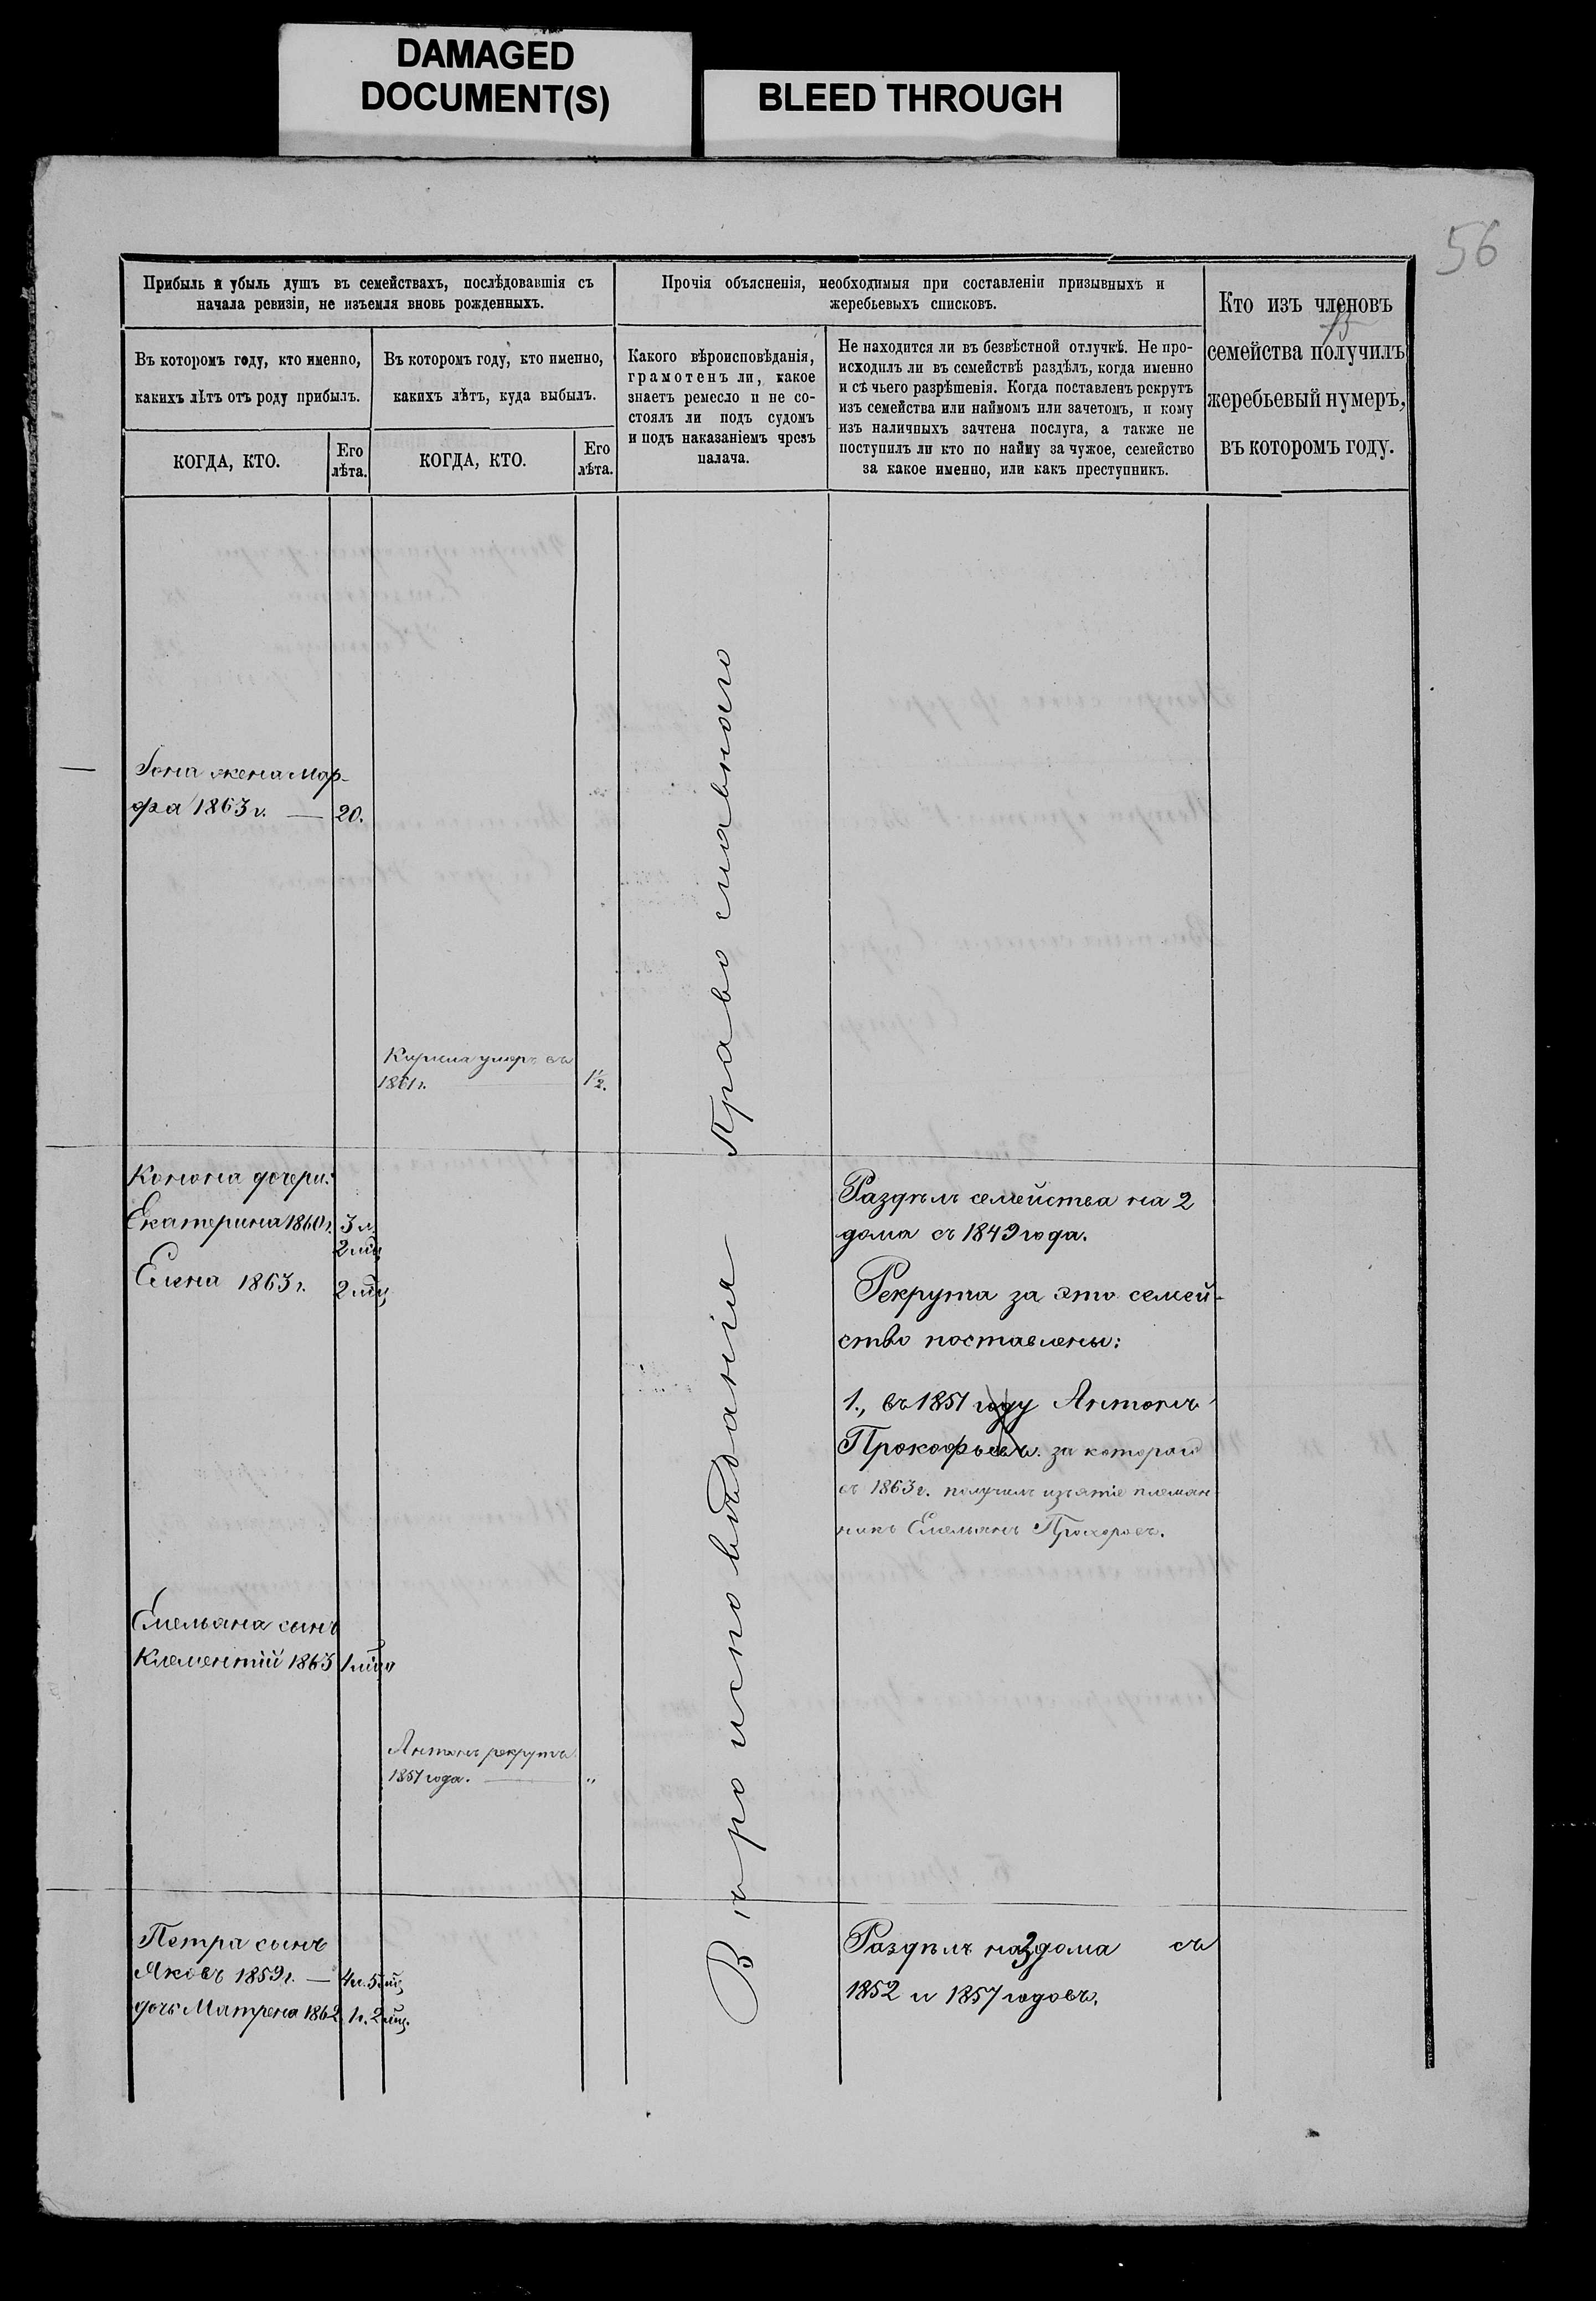 DAMAGED
DOCUMENT(S)
BLEED THROUGH
56
Прибыль и убыль душъ въ семействахъ, послѣдовавшія съ
начала ревизіи, не изъемля вновь рожденныхъ.
Прочія объясненія, необходимыя при составленіи призывныхъ и
жеребьевыхъ списковъ.
Кто изъ членовъ
семейства получилъ
жеребьевый нумеръ,
въ которомъ году.
Въ которомъ году, кто именно,
какихъ лѣтъ отъ роду прибылъ.
Въ которомъ году, кто именно,
какихъ лѣтъ, куда выбылъ.
Какого вѣроисповѣданія,
грамотенъ ли, какое
знаетъ ремесло и не со-
стоялъ ли подъ судомъ
и подъ наказаніемъ чрезъ
палача.
Не находится ли въ безвѣстной отлучкѣ. Не про-
исходилъ ли въ семействѣ раздѣлъ, когда именно
и съ чьего разрѣшенія. Когда поставленъ рекрутъ
изъ семейства или наймомъ или зачетомъ, и кому
изъ наличныхъ зачтена послуга, а также не
поступилъ ли кто по найму за чужое, семейство
за какое именно, или какъ преступникъ.
КОГДА, КТО.
Его
лѣта.
КОГДА, КТО.
Его
лѣта.
Іона жена Мар-
фа 1863 г. — 20.
Кирила умеръ въ
1861 г. 1½.
Вѣроисповѣданія Православнаго
Конона дочери:
Екатерина 1860 г. 3 л.
2 мц
Елена 1863 г. 2 мц
Раздѣлъ семейства на 2
дома съ 1849 года.
Рекрута за это семей-
ство поставлены:
1., въ 1851 году Антонъ
Прокофьевъ. за котораго
въ 1863 г. получилъ изъятіе племян-
никъ Емельянъ Прохоровъ.
Емельяна сынъ
Клементій 1863 1 мца
Антонъ рекрутъ
1851 года. "
Петра сынъ
Яковъ 1859 г. — 4 л. 5 мц
дочь Матрена 1862 1 г. 2 мц.
Раздѣлъ на 3 дома съ
1852 и 1857 годовъ.